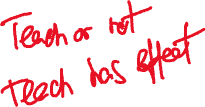 Teach or not
teach has effect